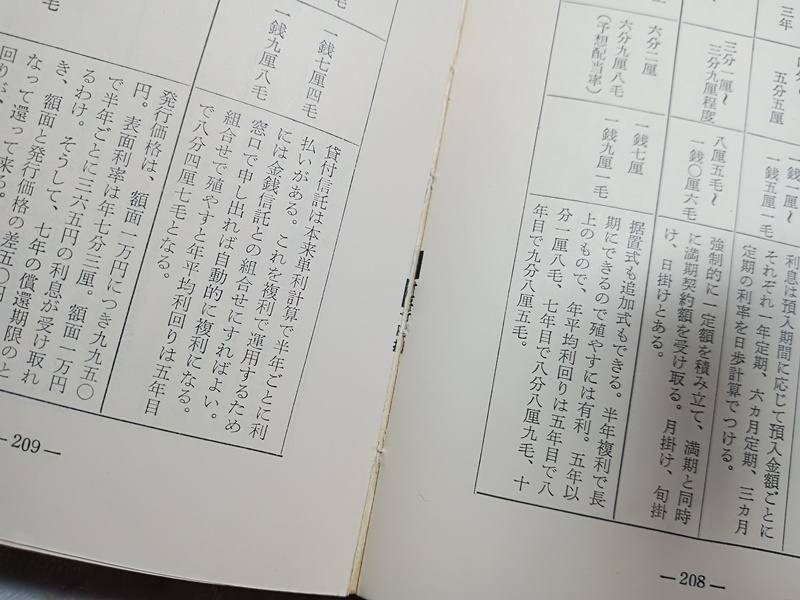 三年
五分五厘
一銭一厘〜
一銭五厘一毛
利息は預入期間に応じて預入金額ごとに
それぞれ一年定期、六カ月定期、三カ月
定期の利率を日歩計算でつける。
三分一厘〜
三分九厘程度
八厘五毛〜
一銭〇厘六毛
強制的に一定額を積み立て、満期と同時
に満期契約額を受け取る。月掛け、旬掛
け、日掛けとある。
六分二厘
六分九厘八毛
(予想配当率)
一銭七厘
一銭九厘一毛
据置式も追加式もできる。半年複利で長
期にできるので殖やすには有利。五年以
上のもので、年平均利回りは五年目で八
分一厘八毛、七年目で八分八厘九毛、十
年目で九分八厘五毛。
—208—
一銭七厘四毛
一銭九厘八毛
貸付信託は本来単利計算で半年ごとに利
払いがある。これを複利で運用するため
には金銭信託との組合せにすればよい。
窓口で申し出れば自動的に複利になる。
組合せで殖やすと年平均利回りは五年目
で八分四厘七毛となる。
発行価格は、額面一万円につき九九五〇
円。表面利率は年七分三厘。額面一万円
で半年ごとに三六五円の利息が受け取れ
るわけ。そうして、七年の償還期限のと
き、額面と発行価格の差五〇円
なって還って来る。
回りが、
—209—